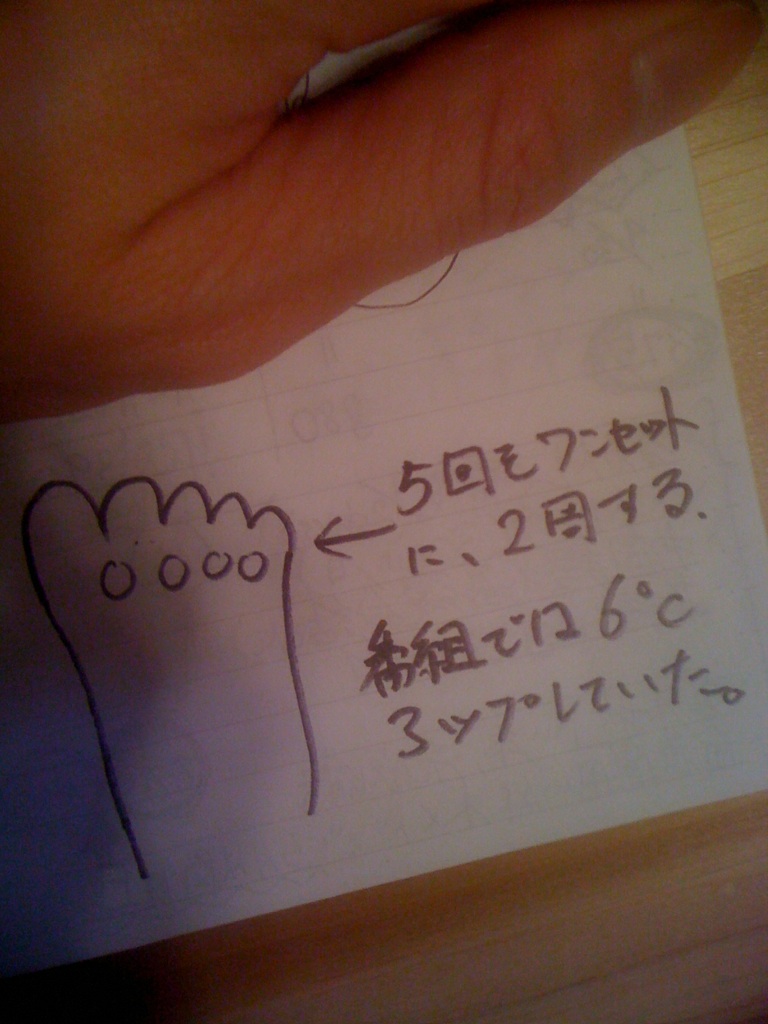 5回をワンセット
に、2周する.
番組では6℃
アップしていた。